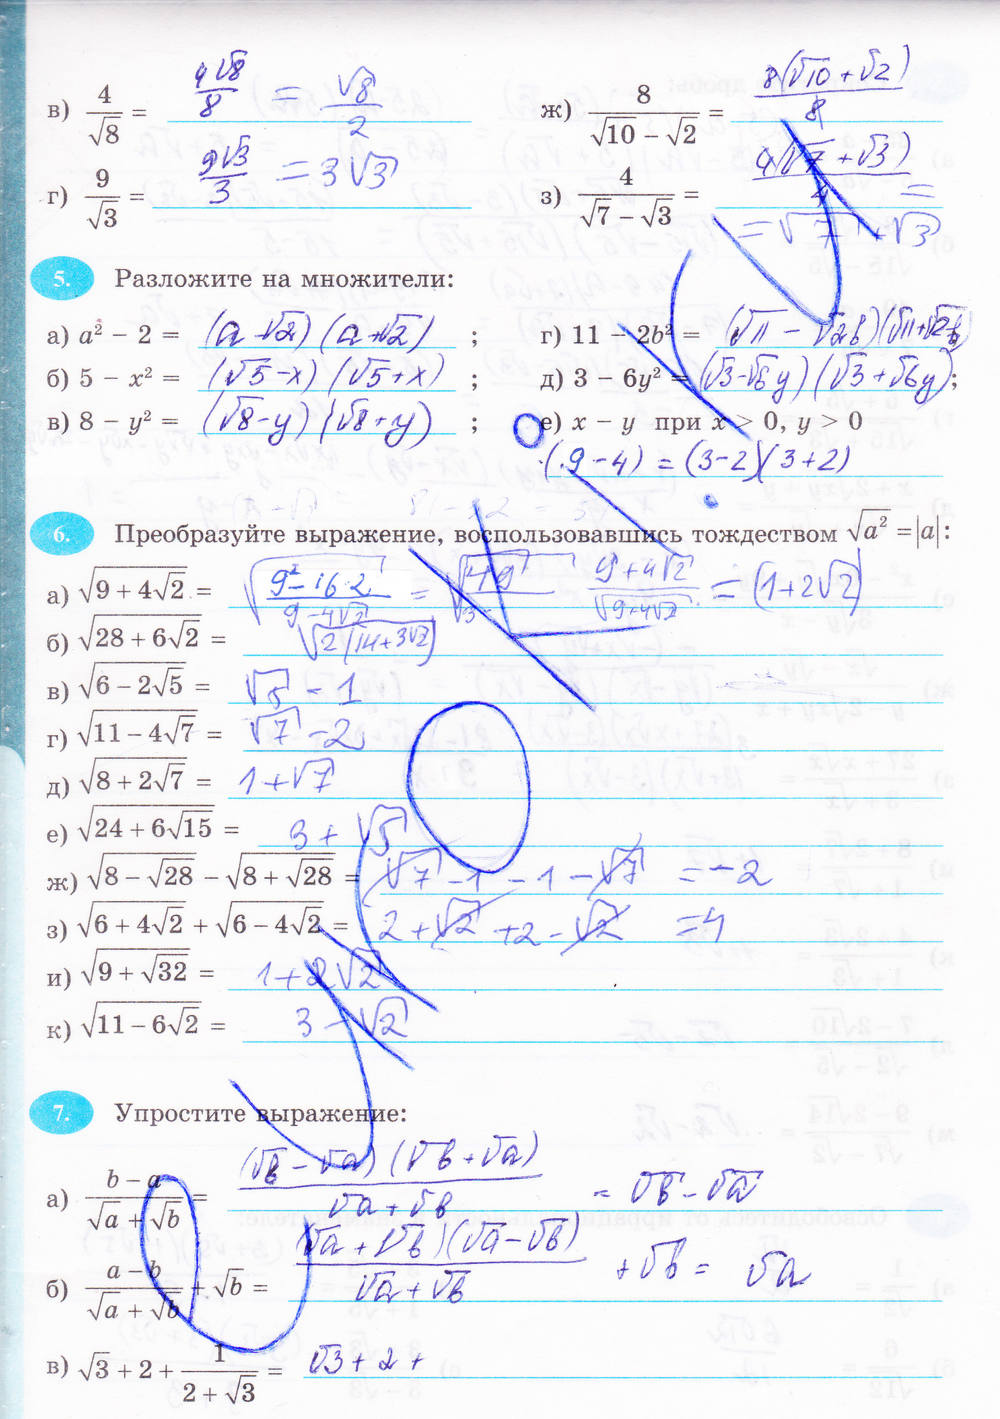 в) 4/√8 = 4√8/8 = √8/2
ж) 8/(√10 − √2) = 8(√10 + √2)/8
г) 9/√3 = 9√3/3 = 3√3
з) 4/(√7 − √3) = 4(√7 + √3)/4 =
= √7 + √3
5. Разложите на множители:
а) a² − 2 = (a − √2) (a + √2) ;
г) 11 − 2b² = (√11 − √2b)(√11 + √2b)
б) 5 − x² = (√5 − x) (√5 + x) ;
д) 3 − 6y² = (√3 − √6y) (√3 + √6y) ;
в) 8 − y² = (√8 − y) (√8 + y) ;
е) x − y при x > 0, y > 0
(9 − 4) = (3 − 2)(3 + 2)
6. Преобразуйте выражение, воспользовавшись тождеством √a² = |a|:
а) √(9 + 4√2) = = (1 + 2√2)
б) √(28 + 6√2) = √(2(14 + 3√2))
в) √(6 − 2√5) = √5 − 1
г) √(11 − 4√7) = √7 − 2
д) √(8 + 2√7) = 1 + √7
е) √(24 + 6√15) = 3 + √5
ж) √(8 − √28) − √(8 + √28) = √7 − 1 − 1 − √7 = −2
з) √(6 + 4√2) + √(6 − 4√2) = 2 + √2 + 2 − √2 = 4
и) √(9 + √32) = 1 + 2√2
к) √(11 − 6√2) = 3 − √2
7. Упростите выражение:
а) (b − a)/(√a + √b) = (√b − √a) (√b + √a)/(√a + √b) = √b − √a
б) (a − b)/(√a + √b) + √b = (√a + √b)(√a − √b)/(√a + √b) + √b = √a
в) √3 + 2 + 1/(2 + √3) = √3 + 2 +